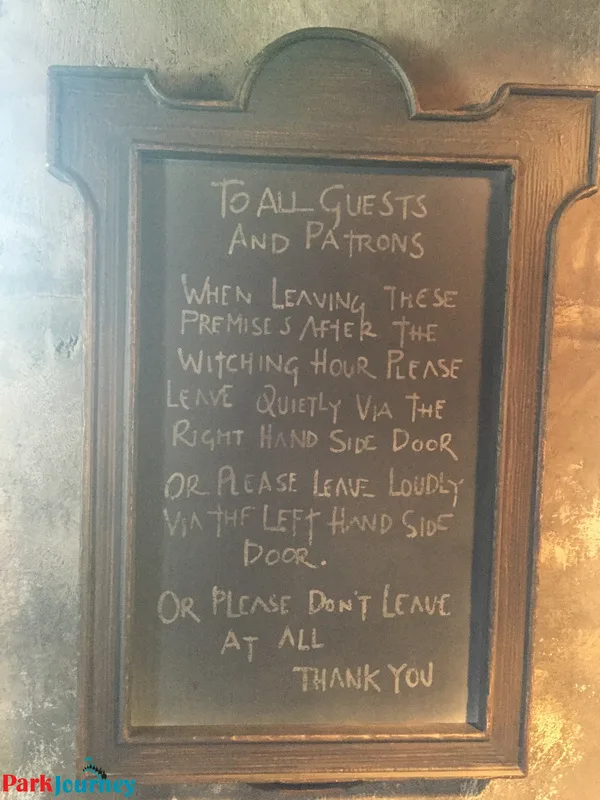 To All Guests
And Patrons
When Leaving These
Premises After The
Witching Hour Please
Leave Quietly Via The
Right Hand Side Door
Or Please Leave Loudly
Via The Left Hand Side
Door.
Or Please Don't Leave
At All
Thank You
ParkJourney